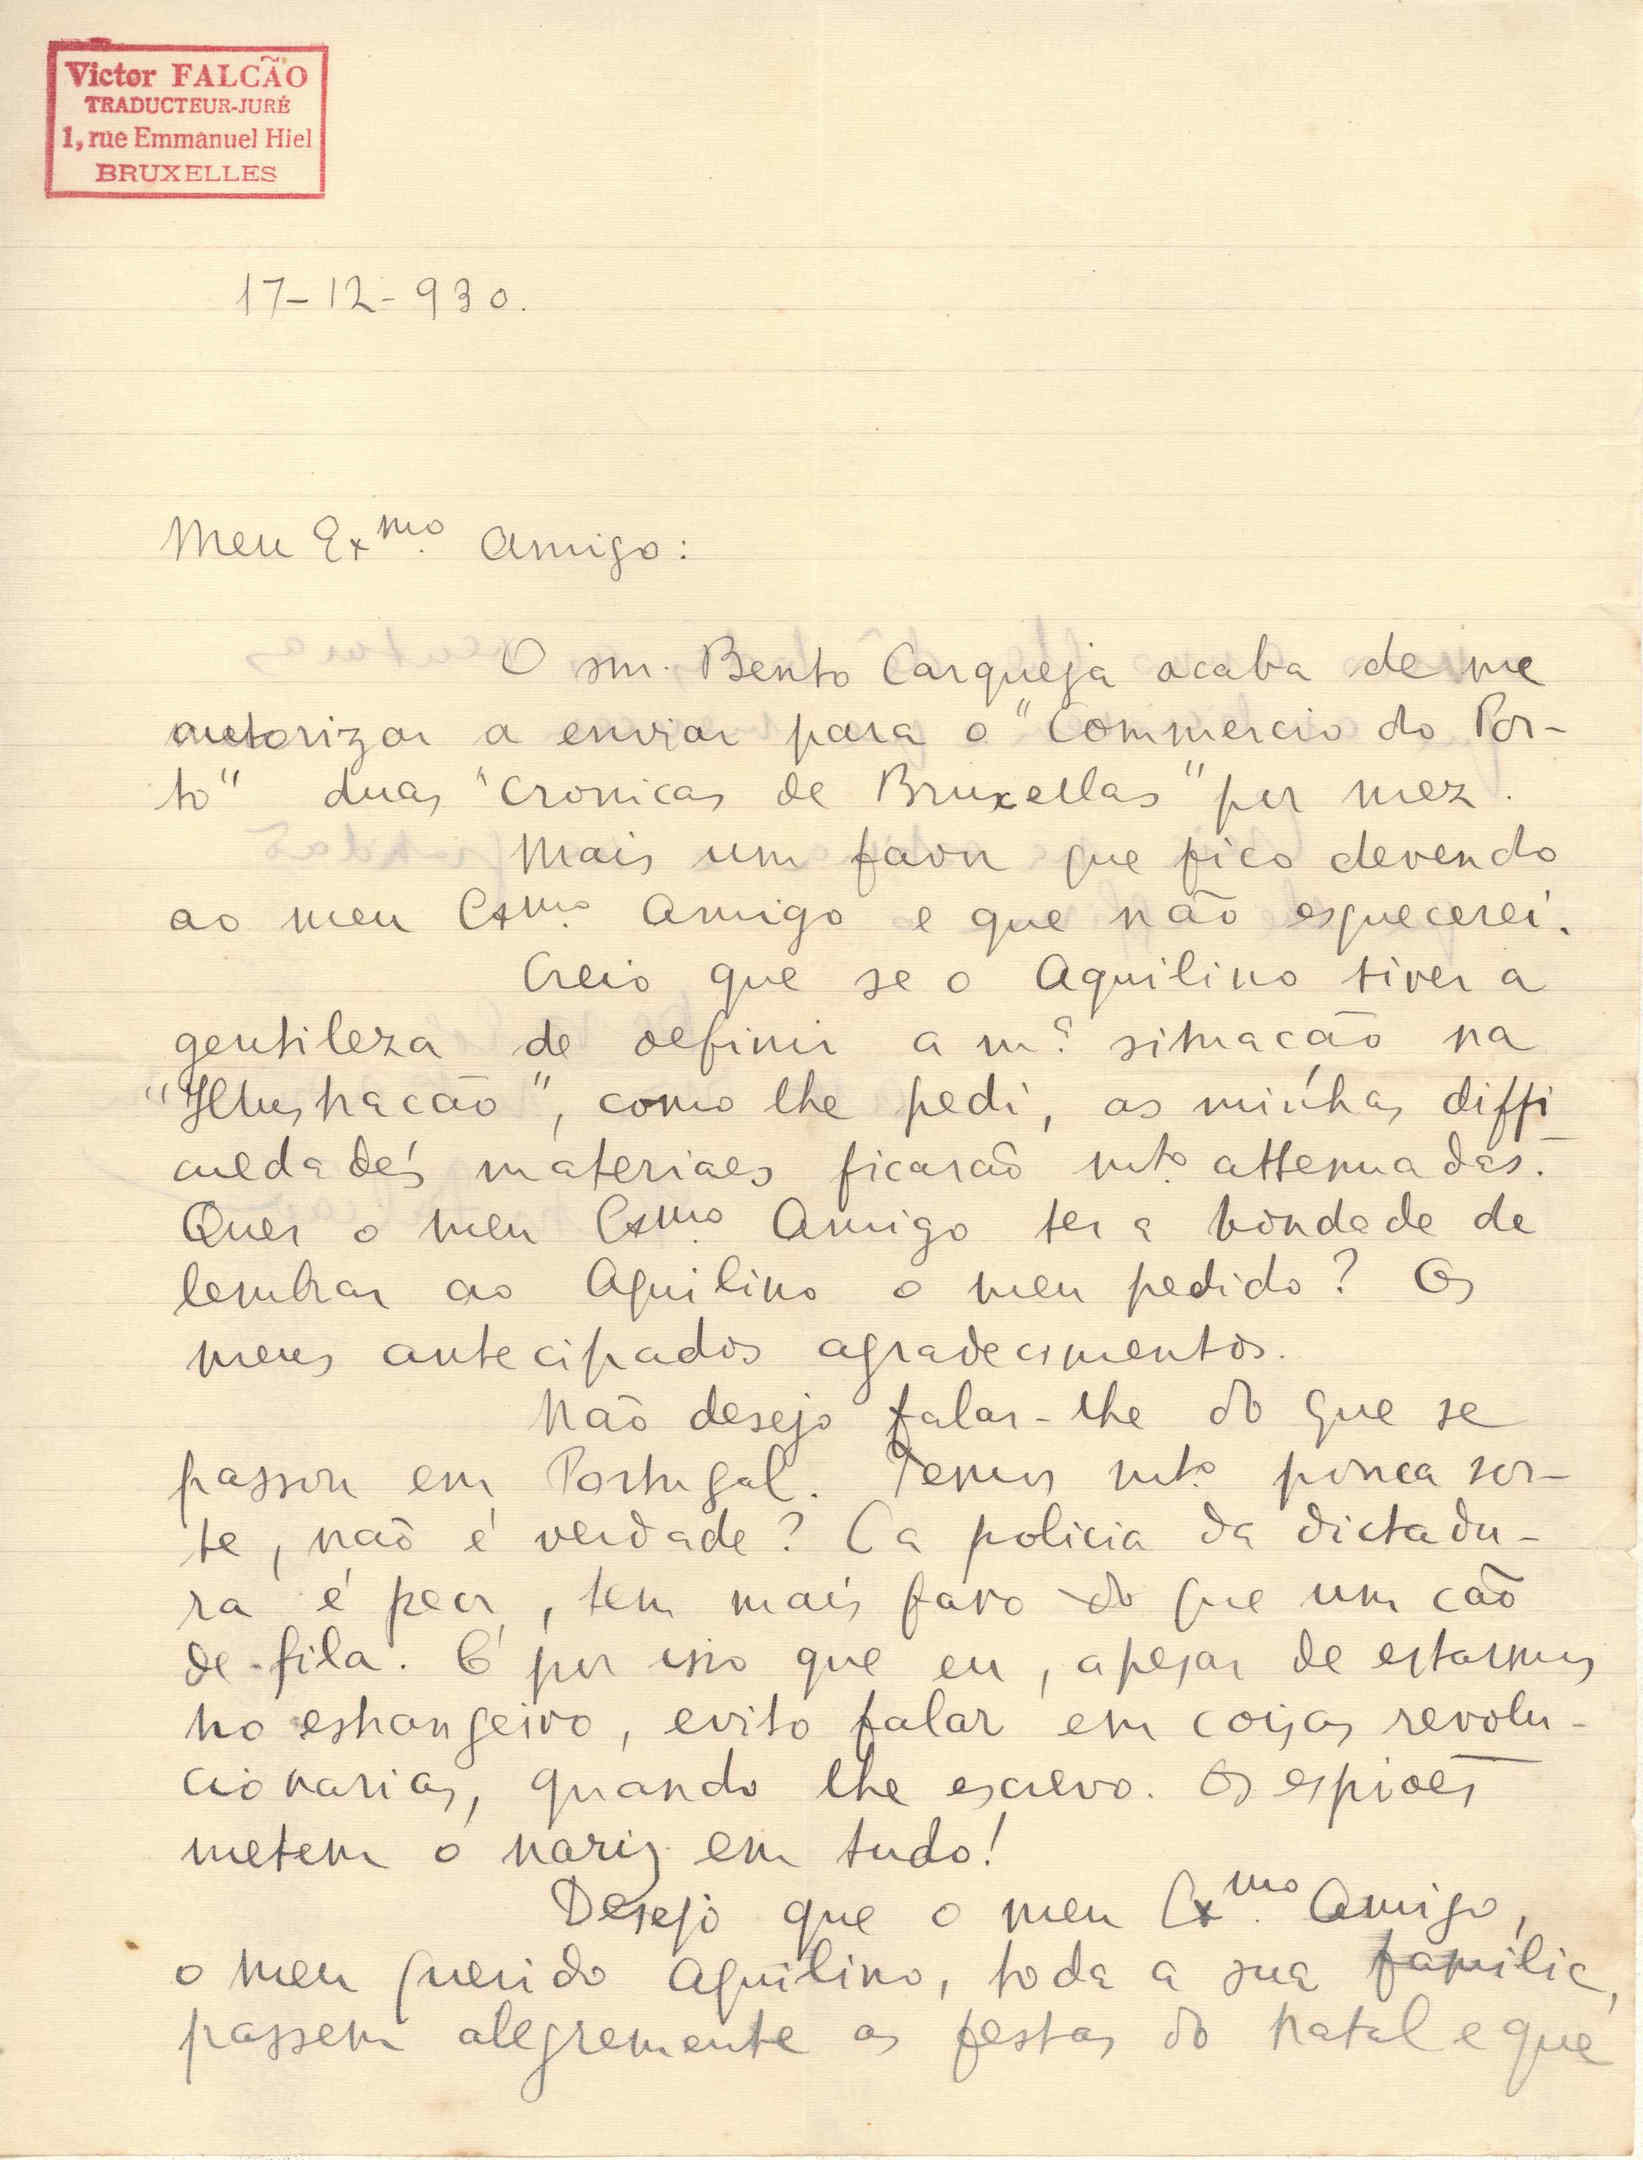 Victor FALCÃO
TRADUCTEUR-JURÉ
1, rue Emmanuel Hiel
BRUXELLES
17-12-930.
Meu Exmo. Amigo:
O snr. Bento Carqueja acaba de me
autorizar a enviar para o "Commercio do Por-
to" duas "Cronicas de Bruxellas" por mez.
Mais um favor que fico devendo
ao meu Exmo. Amigo e que não esquecerei.
Creio que se o Aquilino tiver a
gentileza de definir a m.ª situação na
"Illustração", como lhe pedi, as minhas diffi
culdades materiaes ficarão mto. attenuadas.
Quer o meu Exmo. Amigo ter a bondade de
lembrar ao Aquilino o meu pedido? Os
meus antecipados agradecimentos.
Não desejo falar-lhe do que se
passou em Portugal. Temos mto. pouca sor-
te, não é verdade? Ca policia da dictadu-
ra é peor, tem mais faro do que um cão
de fila. É por isso que eu, apesar de estarmos
no estrangeiro, evito falar em coisas revolu-
cionarias, quando lhe escrevo. Os espiões
metem o nariz em tudo!
Desejo que o meu Exmo. Amigo,
o meu querido Aquilino, toda a sua familia,
passem alegremente as festas do Natal e que